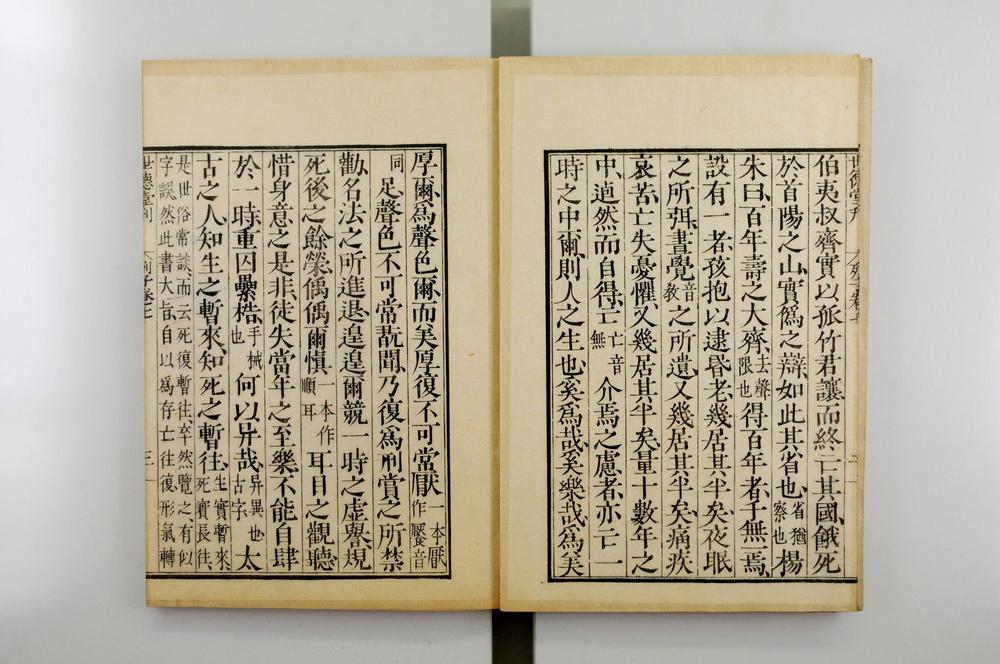 伯夷叔齊實以孤竹君讓而終亡其國餓死
於首陽之山實僞之辯如此其省也省猶察也楊
朱曰百年壽之大齊去聲限也得百年者千無一焉
設有一者孩抱以逮昏老幾居其半矣夜眠
之所弭晝覺音教之所遺又幾居其半矣痛疾
哀苦亡失憂懼又幾居其半矣量十數年之
中逌然而自得亡音無介焉之慮者亦亡一
時之中爾則人之生也奚爲哉奚樂哉爲美
厚爾爲聲色爾而美厚復不可常厭一本厭作饜音
同足聲色不可常翫聞乃復爲刑賞之所禁
勸名法之所進退遑遑爾競一時之虛譽規
死後之餘榮偊偊爾慎一本作順耳耳目之觀聽
惜身意之是非徒失當年之至樂不能自肆
於一時重囚纍梏手械也何以异哉异異也古字太
古之人知生之暫來知死之暫往生實暫來死實長往
是世俗常談而云死復暫往卒然覽之有似
字誤然此書大旨自以爲存亡往復形氣轉
世德堂刊
列子卷七